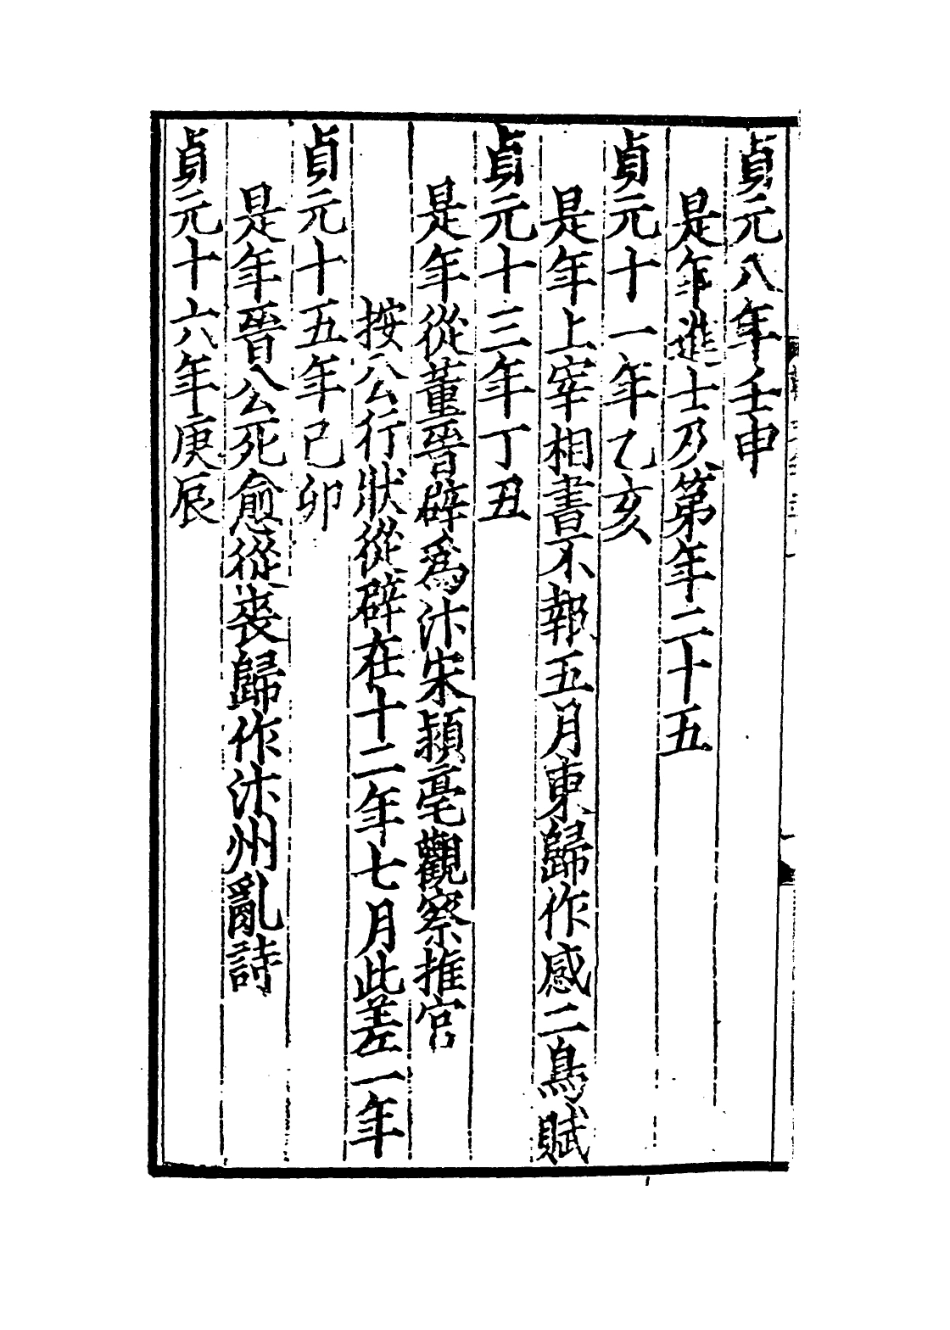 貞元八年壬申
是年進士乃第年二十五
貞元十一年乙亥
是年上宰相書不報五月東歸作感二鳥賦
貞元十三年丁丑
是年從董晉辟爲汴宋潁亳觀察推官
按公行狀從辟在十二年七月此差一年
貞元十五年己卯
是年晉公死愈從喪歸作汴州亂詩
貞元十六年庚辰